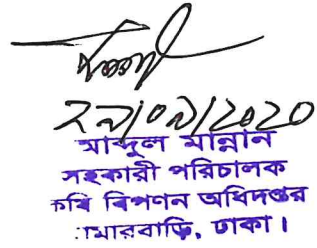 ২৯/০৯/2020
আব্দুল মান্নান
সহকারী পরিচালক
কৃষি বিপণন অধিদপ্তর
খামারবাড়ি, ঢাকা।